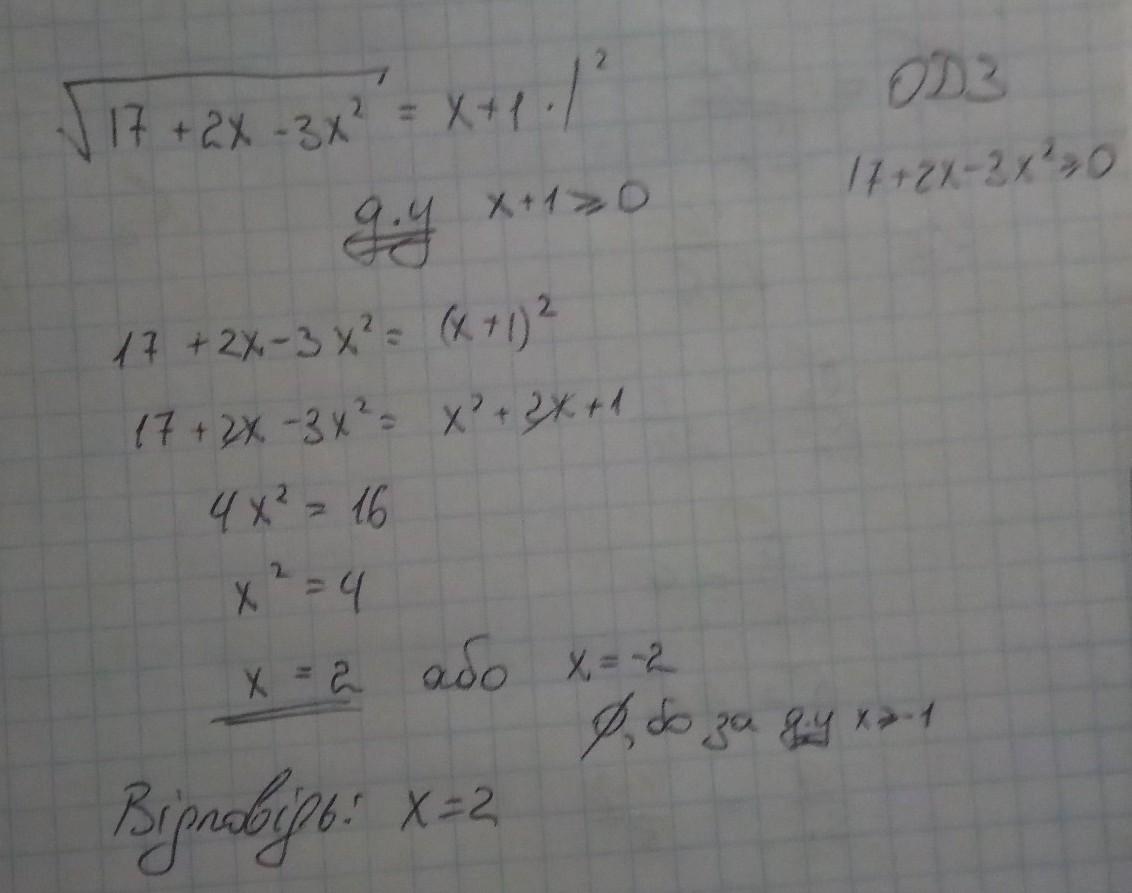 √(17 + 2x - 3x²) = x + 1 · |²
ОДЗ
17 + 2x - 3x² ≥ 0
д.у x + 1 ≥ 0
17 + 2x - 3x² = (x + 1)²
17 + 2x - 3x² = x² + 2x + 1
4x² = 16
x² = 4
x = 2 або x = -2
∅, бо за д.у x ≥ -1
Відповідь: x = 2